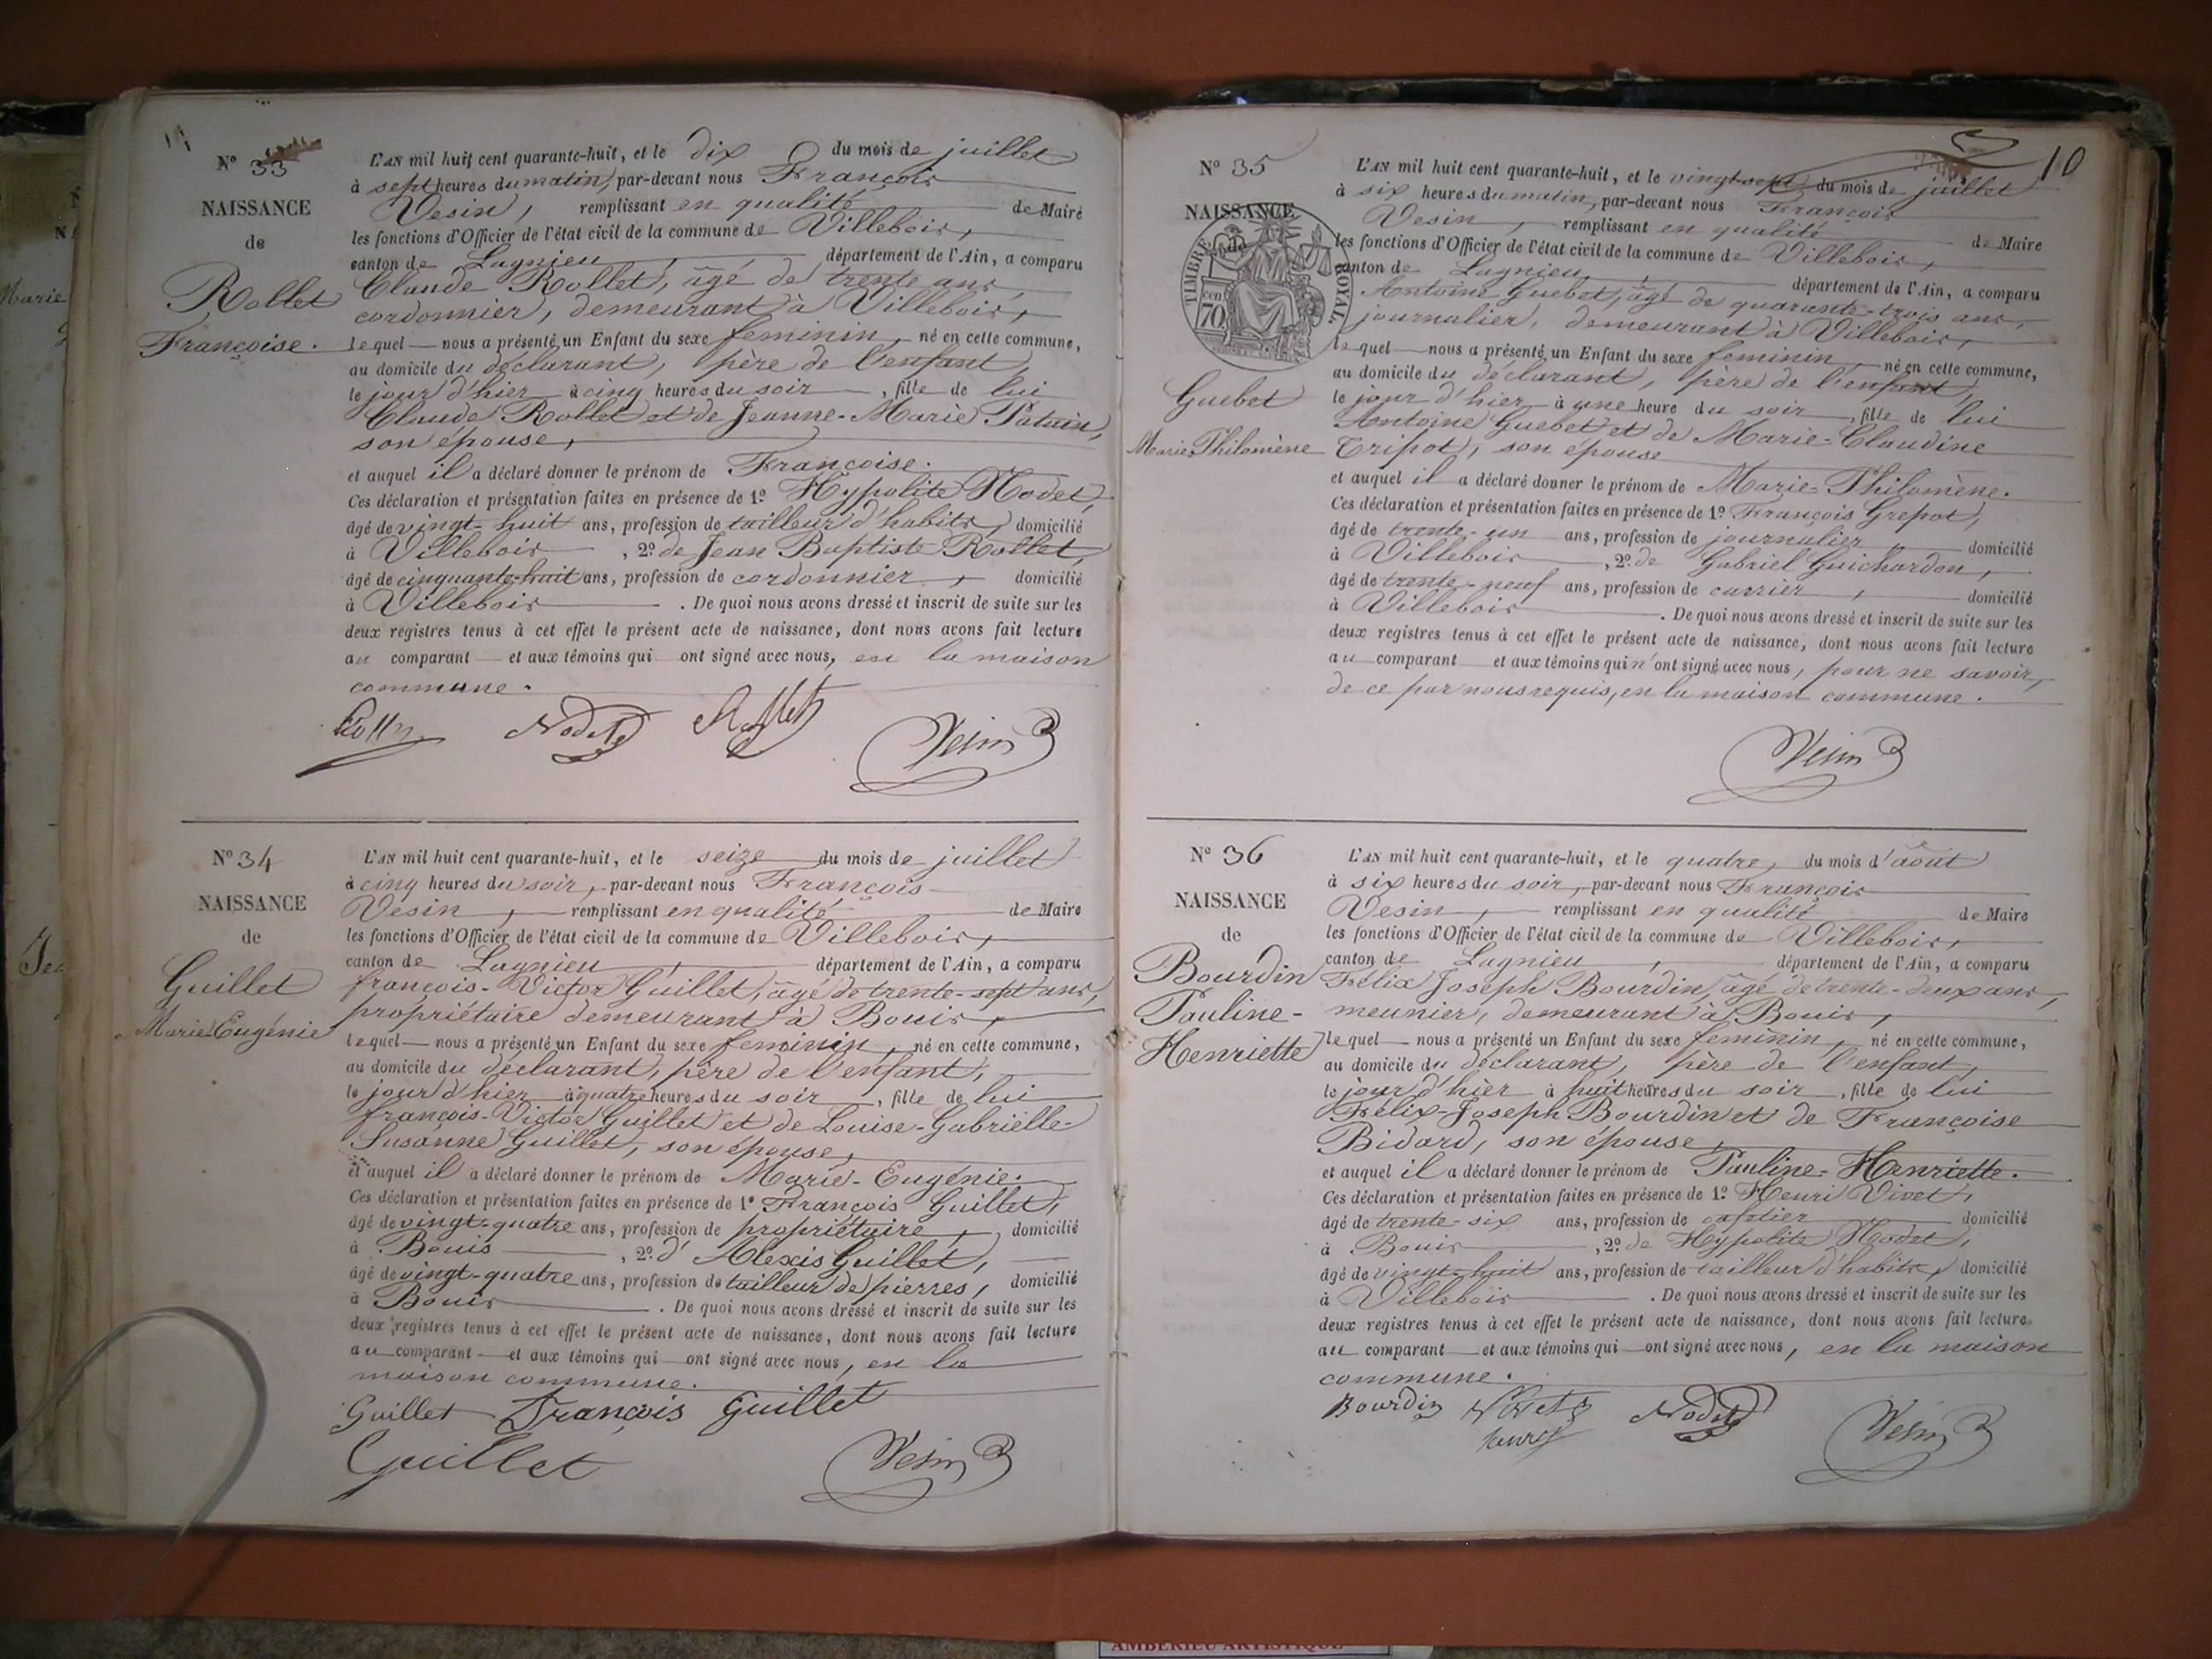 N.º 33
NAISSANCE
de
Rollet
Françoise.
L'AN mil huit cent quarante-huit, et le dix du mois de juillet
à sept heures du matin, par-devant nous François
Vesin, remplissant en qualité de Maire
les fonctions d'Officier de l'état civil de la commune de Villebois,
canton de Lagnieu, département de l'Ain, a comparu
Claude Rollet, âgé de trente ans,
cordonnier, demeurant à Villebois,
lequel nous a présenté un Enfant du sexe feminin, né en cette commune,
au domicile du déclarant, père de l'enfant,
le jour d'hier à cinq heures du soir, fille de lui
Claude Rollet et de Jeanne-Marie
son épouse,
et auquel il a déclaré donner le prénom de Françoise.
Ces déclaration et présentation faites en présence de 1.º Hypolite Nodet,
âgé de vingt-huit ans, profession de tailleur d'habits, domicilié
à Villebois, 2.º de Jean Baptiste Rollet,
âgé de cinquante-huit ans, profession de cordonnier, domicilié
à Villebois. De quoi nous avons dressé et inscrit de suite sur les
deux registres tenus à cet effet le présent acte de naissance, dont nous avons fait lecture
au comparant et aux témoins qui ont signé avec nous, en la maison
commune.
Nodet Rollet Vesin
N.º 34
NAISSANCE
de
Guillet
Marie-Eugénie
L'AN mil huit cent quarante-huit, et le seize du mois de juillet
à cinq heures du soir, par-devant nous François
Vesin, remplissant en qualité de Maire
les fonctions d'Officier de l'état civil de la commune de Villebois,
canton de Lagnieu, département de l'Ain, a comparu
françois-Victor Guillet, âgé de trente-sept ans,
propriétaire demeurant à Bouis,
lequel nous a présenté un Enfant du sexe feminin, né en cette commune,
au domicile du déclarant, père de l'enfant,
le jour d'hier à quatre heures du soir, fille de lui
françois-Victor Guillet et de Louise-Gabrielle-
Susanne Guillet, son épouse,
et auquel il a déclaré donner le prénom de Marie-Eugénie.
Ces déclaration et présentation faites en présence de 1.º François Guillet,
âgé de vingt-quatre ans, profession de propriétaire, domicilié
à Bouis, 2.º d'Alexis Guillet,
âgé de vingt-quatre ans, profession de tailleur de pierres, domicilié
à Bouis. De quoi nous avons dressé et inscrit de suite sur les
deux registres tenus à cet effet le présent acte de naissance, dont nous avons fait lecture
au comparant et aux témoins qui ont signé avec nous, en la
maison commune.
Guillet François Guillet
Guillet Vesin
10
N.º 35
NAISSANCE
de
TIMBRE ROYAL
cen
70
Guebet
Marie-Philomène
L'AN mil huit cent quarante-huit, et le vingt-sept du mois de juillet
à six heures du matin, par-devant nous François
Vesin, remplissant en qualité de Maire
les fonctions d'Officier de l'état civil de la commune de Villebois,
canton de Lagnieu, département de l'Ain, a comparu
Antoine Guebet, âgé de quarante-trois ans,
journalier, demeurant à Villebois,
lequel nous a présenté un Enfant du sexe feminin, né en cette commune,
au domicile du déclarant, père de l'enfant,
le jour d'hier à une heure du soir, fille de lui
Antoine Guebet et de Marie-Claudine
Tripot, son épouse
et auquel il a déclaré donner le prénom de Marie-Philomène.
Ces déclaration et présentation faites en présence de 1.º François Grepot,
âgé de trente-un ans, profession de journalier domicilié
à Villebois, 2.º de Gabriel Guichardon,
âgé de trente-neuf ans, profession de carrier, domicilié
à Villebois. De quoi nous avons dressé et inscrit de suite sur les
deux registres tenus à cet effet le présent acte de naissance, dont nous avons fait lecture
au comparant et aux témoins qui n'ont signé avec nous, pour ne savoir,
de ce par nous requis, en la maison commune.
Vesin
N.º 36
NAISSANCE
de
Bourdin
Pauline-
Henriette
L'AN mil huit cent quarante-huit, et le quatre, du mois d'août
à six heures du soir, par-devant nous François
Vesin, remplissant en qualité de Maire
les fonctions d'Officier de l'état civil de la commune de Villebois,
canton de Lagnieu, département de l'Ain, a comparu
Félix Joseph Bourdin, âgé de trente-deux ans,
meunier, demeurant à Bouis,
lequel nous a présenté un Enfant du sexe feminin, né en cette commune,
au domicile du déclarant, père de l'enfant,
le jour d'hier à huit heures du soir, fille de lui
Félix-Joseph Bourdin et de Françoise
Bidard, son épouse,
et auquel il a déclaré donner le prénom de Pauline-Henriette.
Ces déclaration et présentation faites en présence de 1.º Henri Vivet,
âgé de trente-six ans, profession de cafetier domicilié
à Bouis, 2.º de Hypolite Nodet,
âgé de vingt-huit ans, profession de tailleur d'habits, domicilié
à Villebois. De quoi nous avons dressé et inscrit de suite sur les
deux registres tenus à cet effet le présent acte de naissance, dont nous avons fait lecture
au comparant et aux témoins qui ont signé avec nous, en la maison
commune.
Bourdin Nodet Vesin
AMBERIEU ARTISTIQUE